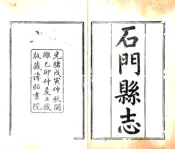 石門縣志
光緒戊寅仲秋開
雕己卯仲夏工成
版藏傅貽書院